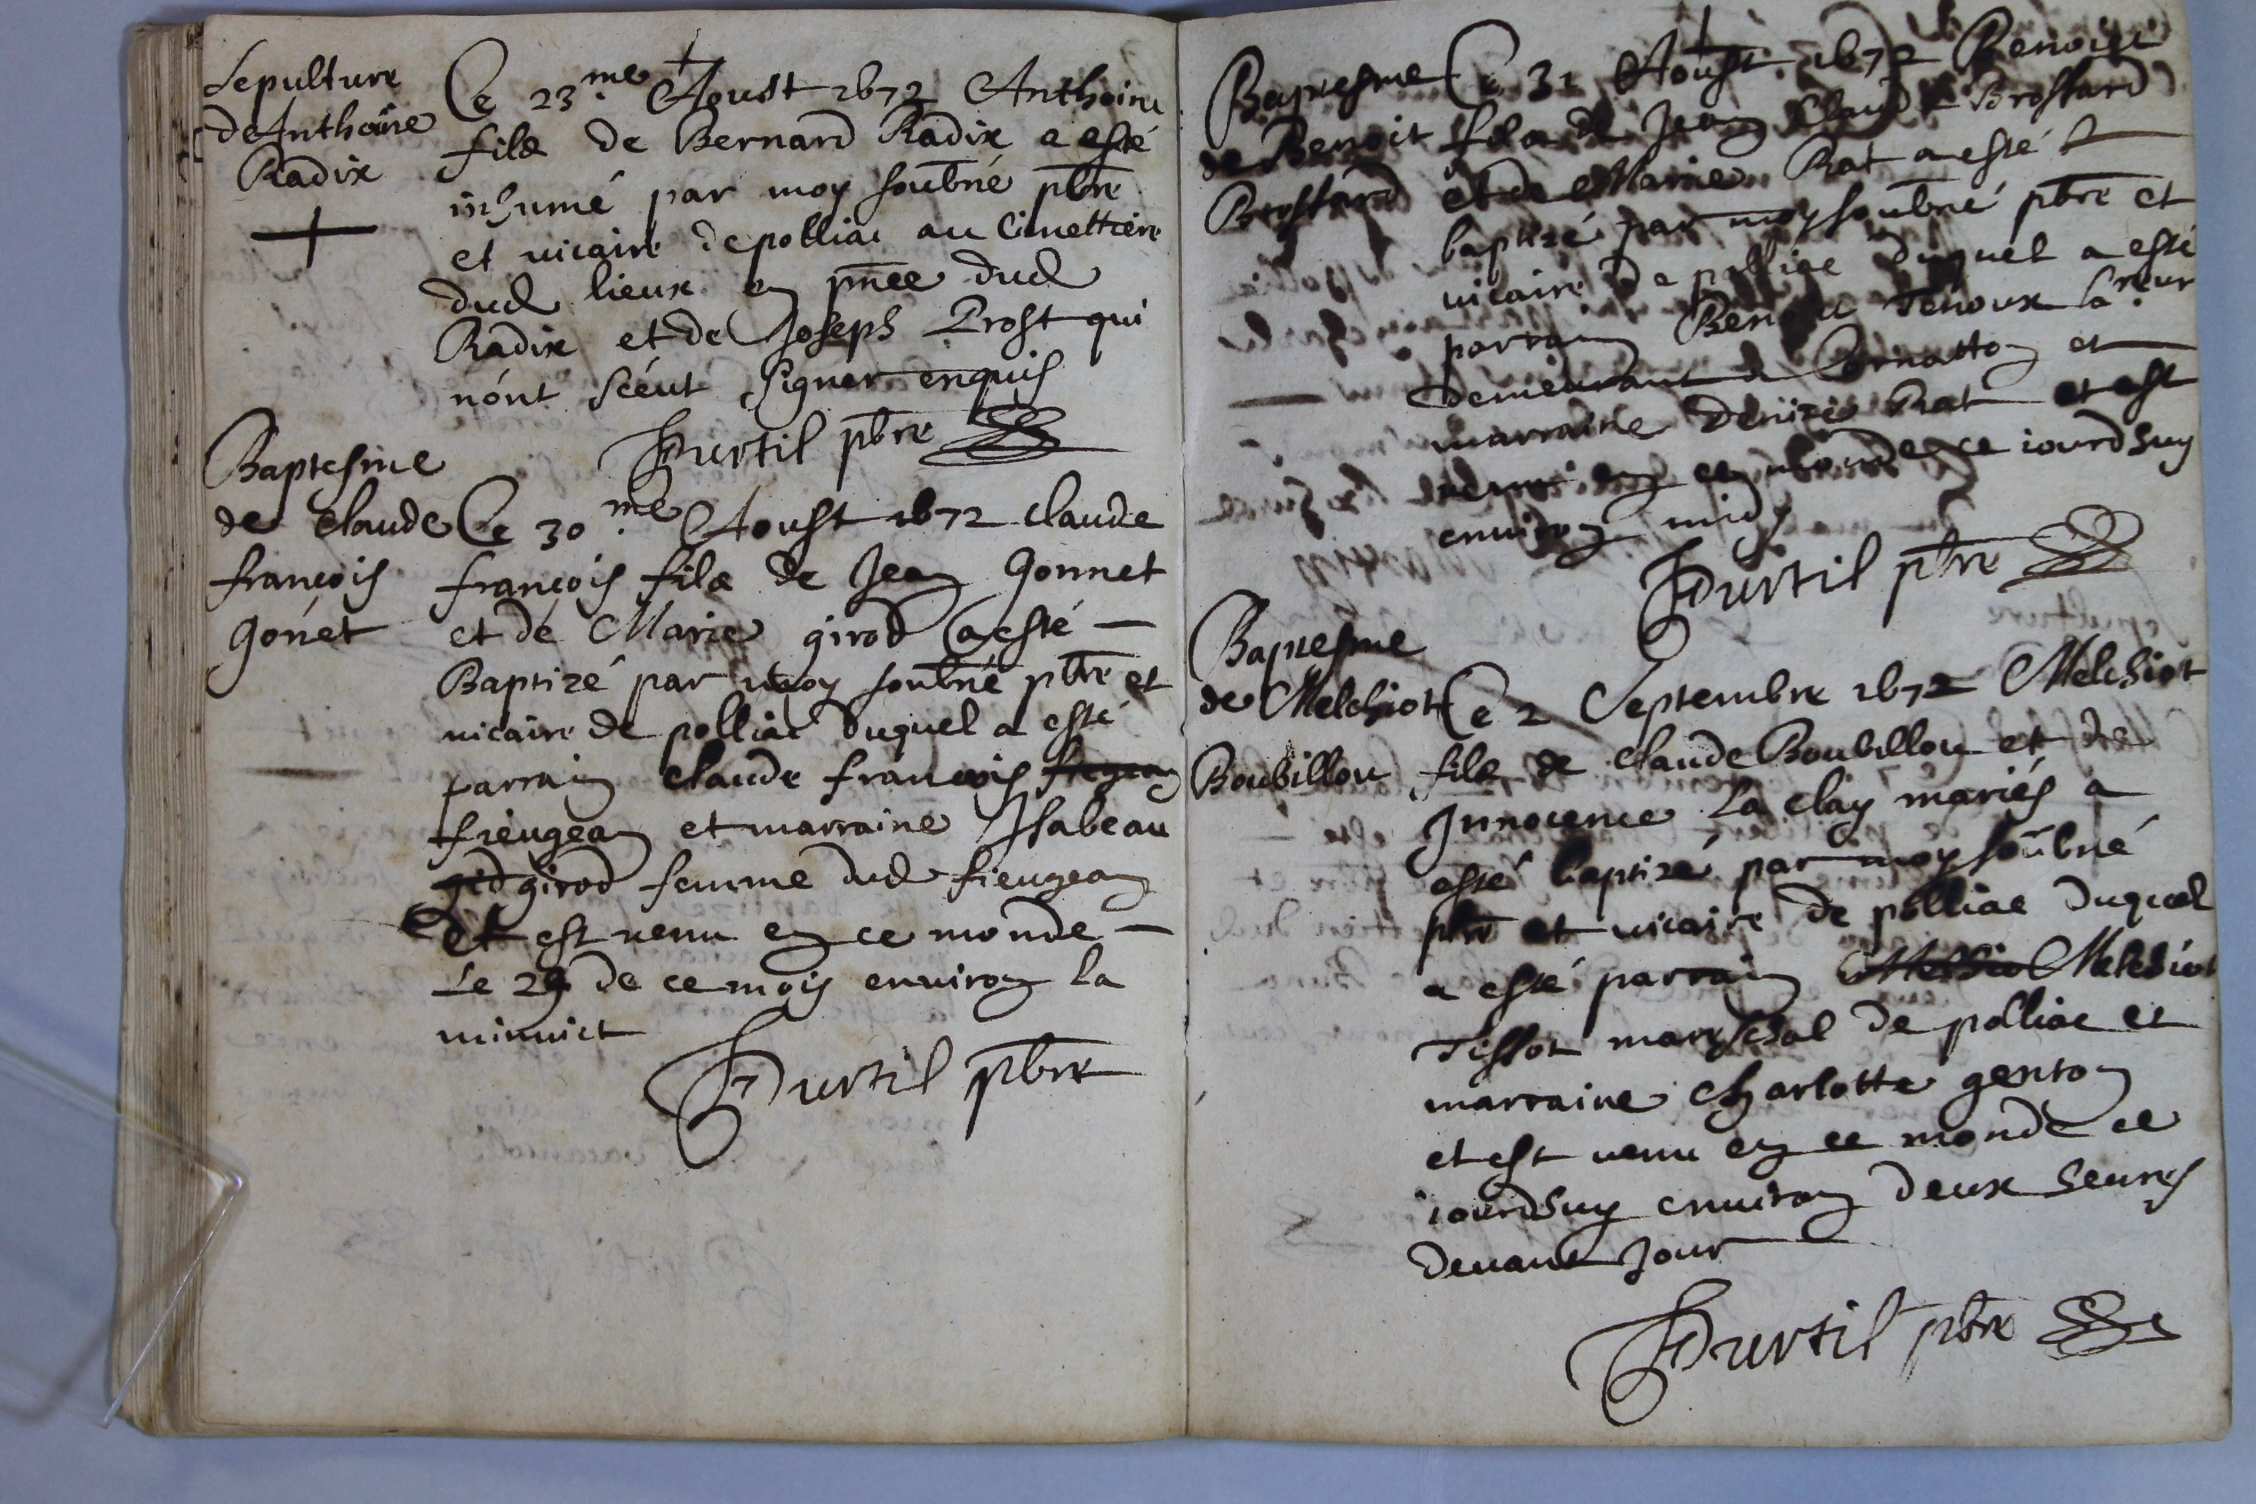 Sepulture
de Anthoine
Radix
Ce 23.me Aoust 1672 Anthoine
filz de Bernard Radix a esté
inhumé par moy soubné pbre
et vicaire de polliac au Cimettiere
dud lieux en pnce dud
Radix et de Joseph Prost qui
nónt scéut signer enquis
Durtil pbre
Baptesme
de claude
françois
gonét
Ce 30.me Aoust 1672 claude
françois filz de Jean Gonnet
et de Marie girod a esté
Baptizé par moy soubné pbre et
vicaire de polliac duquel a esté
parrain claude françois
frèugean et marraine Isabeau
girod femme dud freugean
Et est venu en ce monde
Le 29 de ce mois environ la
minuict
Durtil pbre
Baptesme
de Benoit
Brossard
Ce 31 Aoust 1672 Benoist
filz de Jean Claude Brossard
et de Marie Rat a esté
baptizé par moy soubné pbre et
vicaire de polliac duquel a esté
parrain Benoit Tenoux la.reur
demeurant a Cornatton et
marraine Denize Rat et est
venu en ce monde ce iourdhuy
environ midy
Durtil pbre
Baptesme
de Melchiot
Boubillou
Ce 2 Septembre 1672 Melchiot
filz de claude Boubillou et de
Innocence La clay mariés a
esté baptizé par moy soubné
pbre et vicaire de polliac duquel
a esté parrain Melchiot
Tissot mareschal de polliac et
marraine Charlotte genton
et est venu en ce monde ce
iourdhuy environ deux heures
devant Jour
Durtil pbre